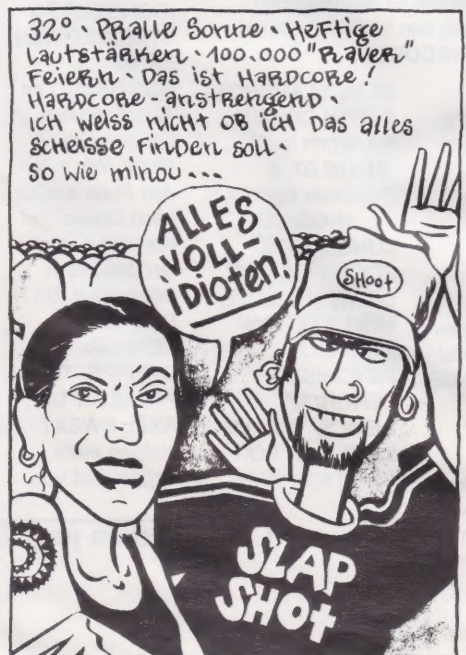 32° · PRalle Sonne · HeFtige
Lautstärken · 100.000 "RaveR"
FeieRn · Das ist HaRDCORe!
HaRDCORe-anstRengenD ·
ICH Weiss nicHt OB ICH Das alles
scHeisse FinDen soll ·
So wie minou...
ALLES
VOLL-
IDioten!
SHoot
SLAP
SHOt